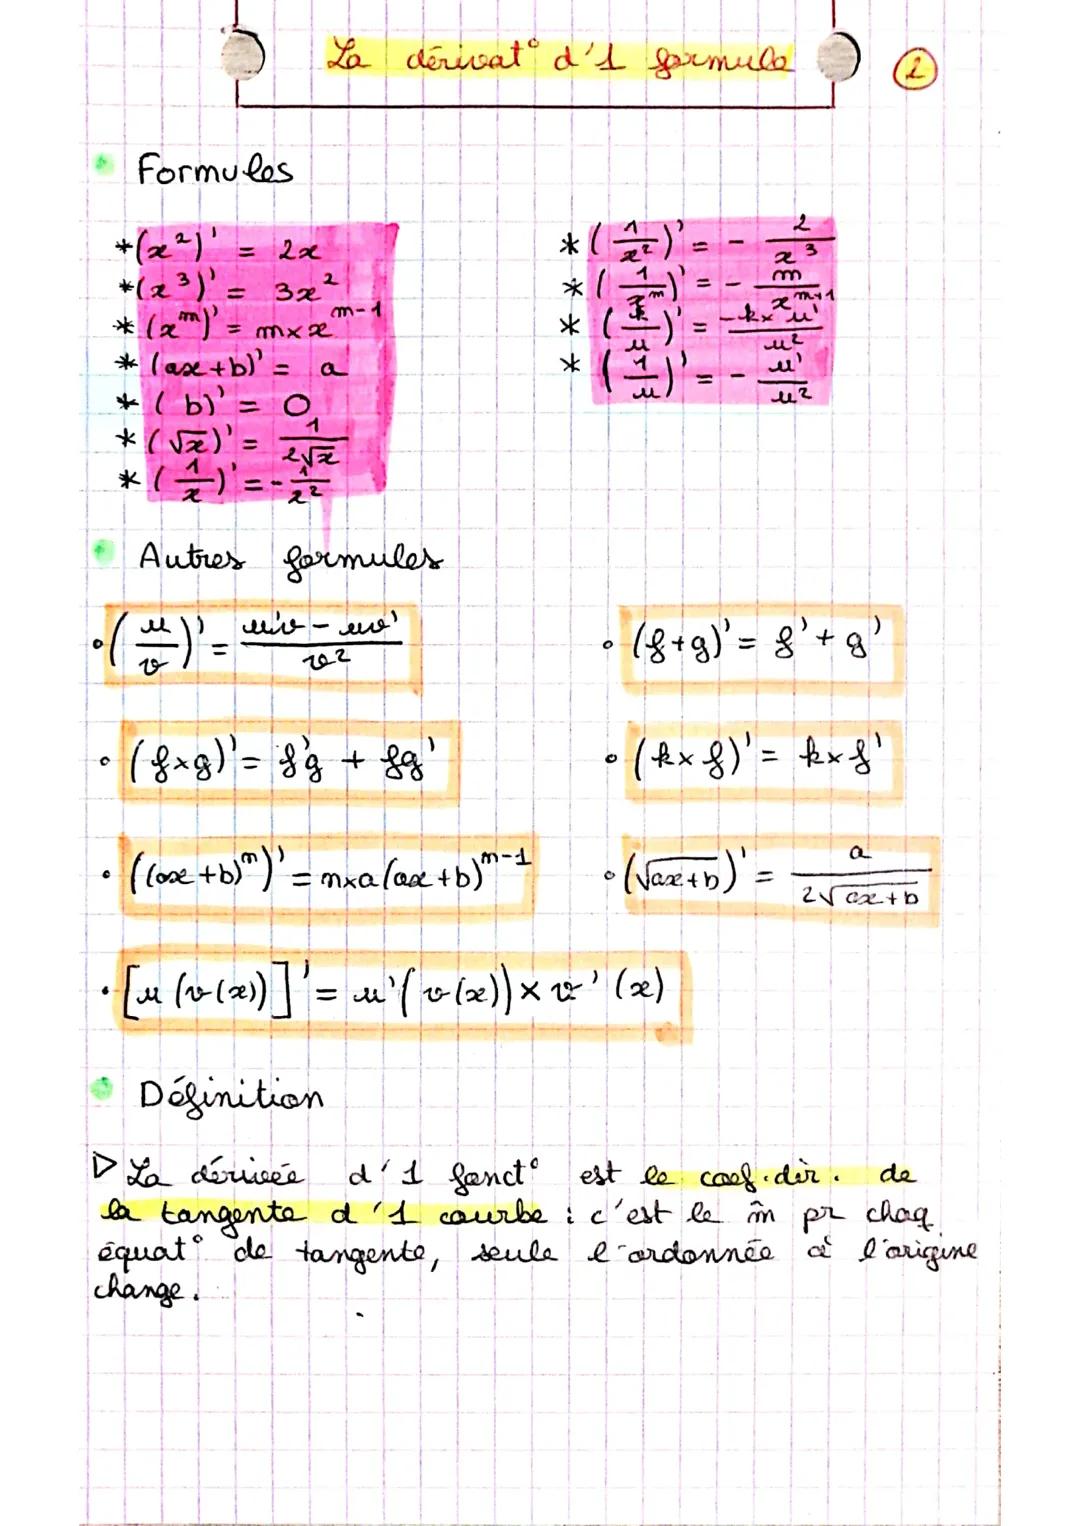 La dérivat° d'1 formule
2
Formules
*(x²)' = 2x
*(x³)' = 3x²
*(xᵐ)' = m×xᵐ⁻¹
*(ax+b)' = a
*(b)' = 0
*(√x)' = 1/(2√x)
*(1/x)' = -1/x²
*(1/x²)' = - 2/x³
*(1/xᵐ)' = - m/xᵐ⁺¹
*(k/u)' = -k×u'/u²
*(1/u)' = - u'/u²
Autres formules
(u/v)' = (u'v - uv')/v²
(f+g)' = f' + g'
(f×g)' = f'g + fg'
(k×f)' = k×f'
((ax+b)ᵐ)' = m×a(ax+b)ᵐ⁻¹
(√(ax+b))' = a/(2√(ax+b))
[u(v(x))]' = u'(v(x)) × v'(x)
Définition
▷ La dérivée d'1 fonct° est le coef.dir. de
la tangente d'1 courbe : c'est le m̂ pr chaq
équat° de tangente, seule l'ordonnée à l'origine
change.